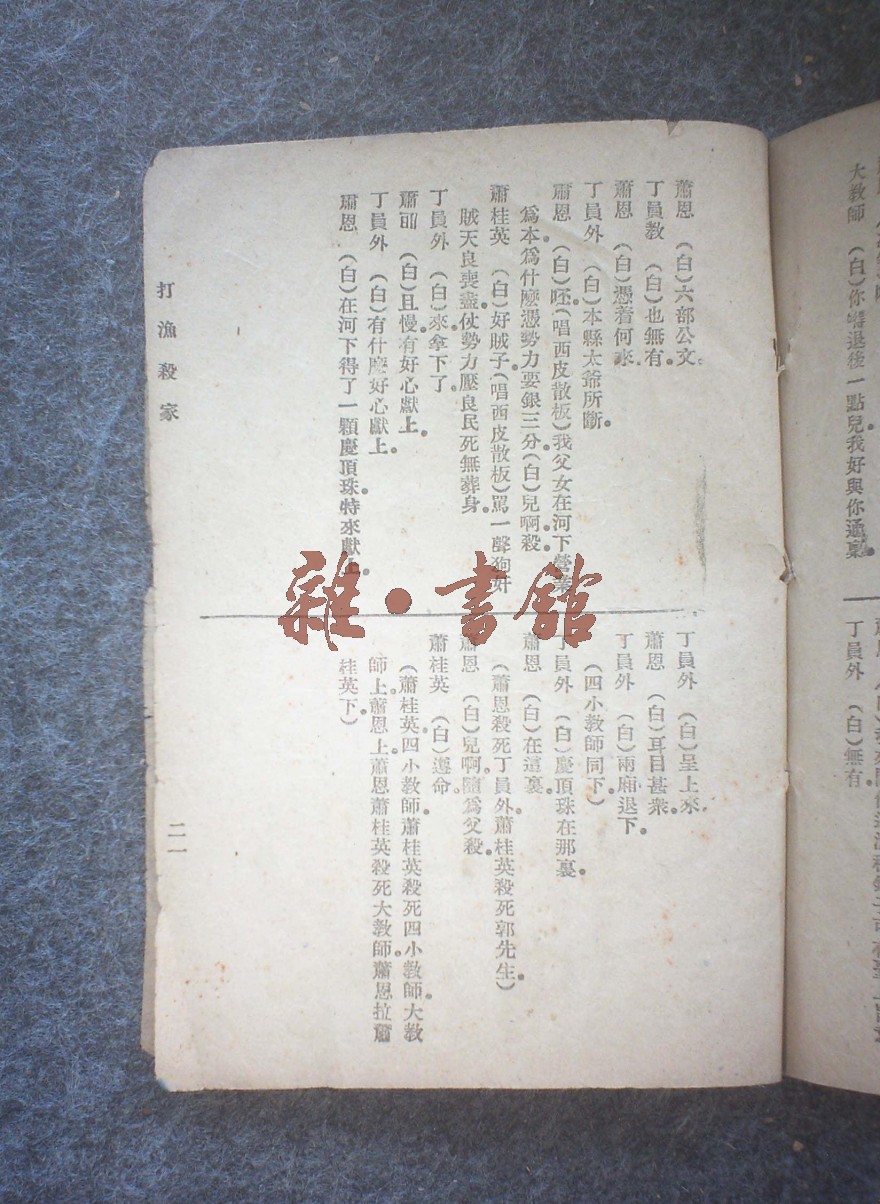 大教師　(白)你嚀退後一點兒我好與你通裏。
丁員外　(白)無有。
蕭恩　(白)六部公文。
丁員教　(白)也無有。
蕭恩　(白)憑着何來。
丁員外　(白)本縣太爺所斷。
蕭恩　(白)呸(唱西皮散板)我父女在河下營業
爲本爲什麽憑勢力要銀三分(白)兒啊殺
蕭桂英　(白)好賊子(唱西皮散板)罵一聲狗奸
賊天良喪盡仗勢力壓良民死無葬身。
丁員外　(白)來拿下了。
蕭恩　(白)且慢有好心獻上。
丁員外　(白)有什麽好心獻上。
蕭恩　(白)在河下得了一顆慶頂珠特來獻上。
丁員外　(白)呈上來。
蕭恩　(白)耳目甚衆。
丁員外　(白)兩廂退下。
(四小教師同下)
丁員外　(白)慶頂珠在那裏。
蕭恩　(白)在這裏。
(蕭恩殺死丁員外蕭桂英殺死郭先生)
蕭恩　(白)兒啊隨爲父殺。
蕭桂英　(白)遵命。
(蕭桂英四小教師蕭桂英殺死四小教師大教
師上蕭恩上蕭恩蕭桂英殺死大教師蕭恩拉蕭
桂英下)
打漁殺家
二一
雜·書館